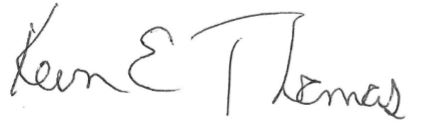 Kevin E Thomas